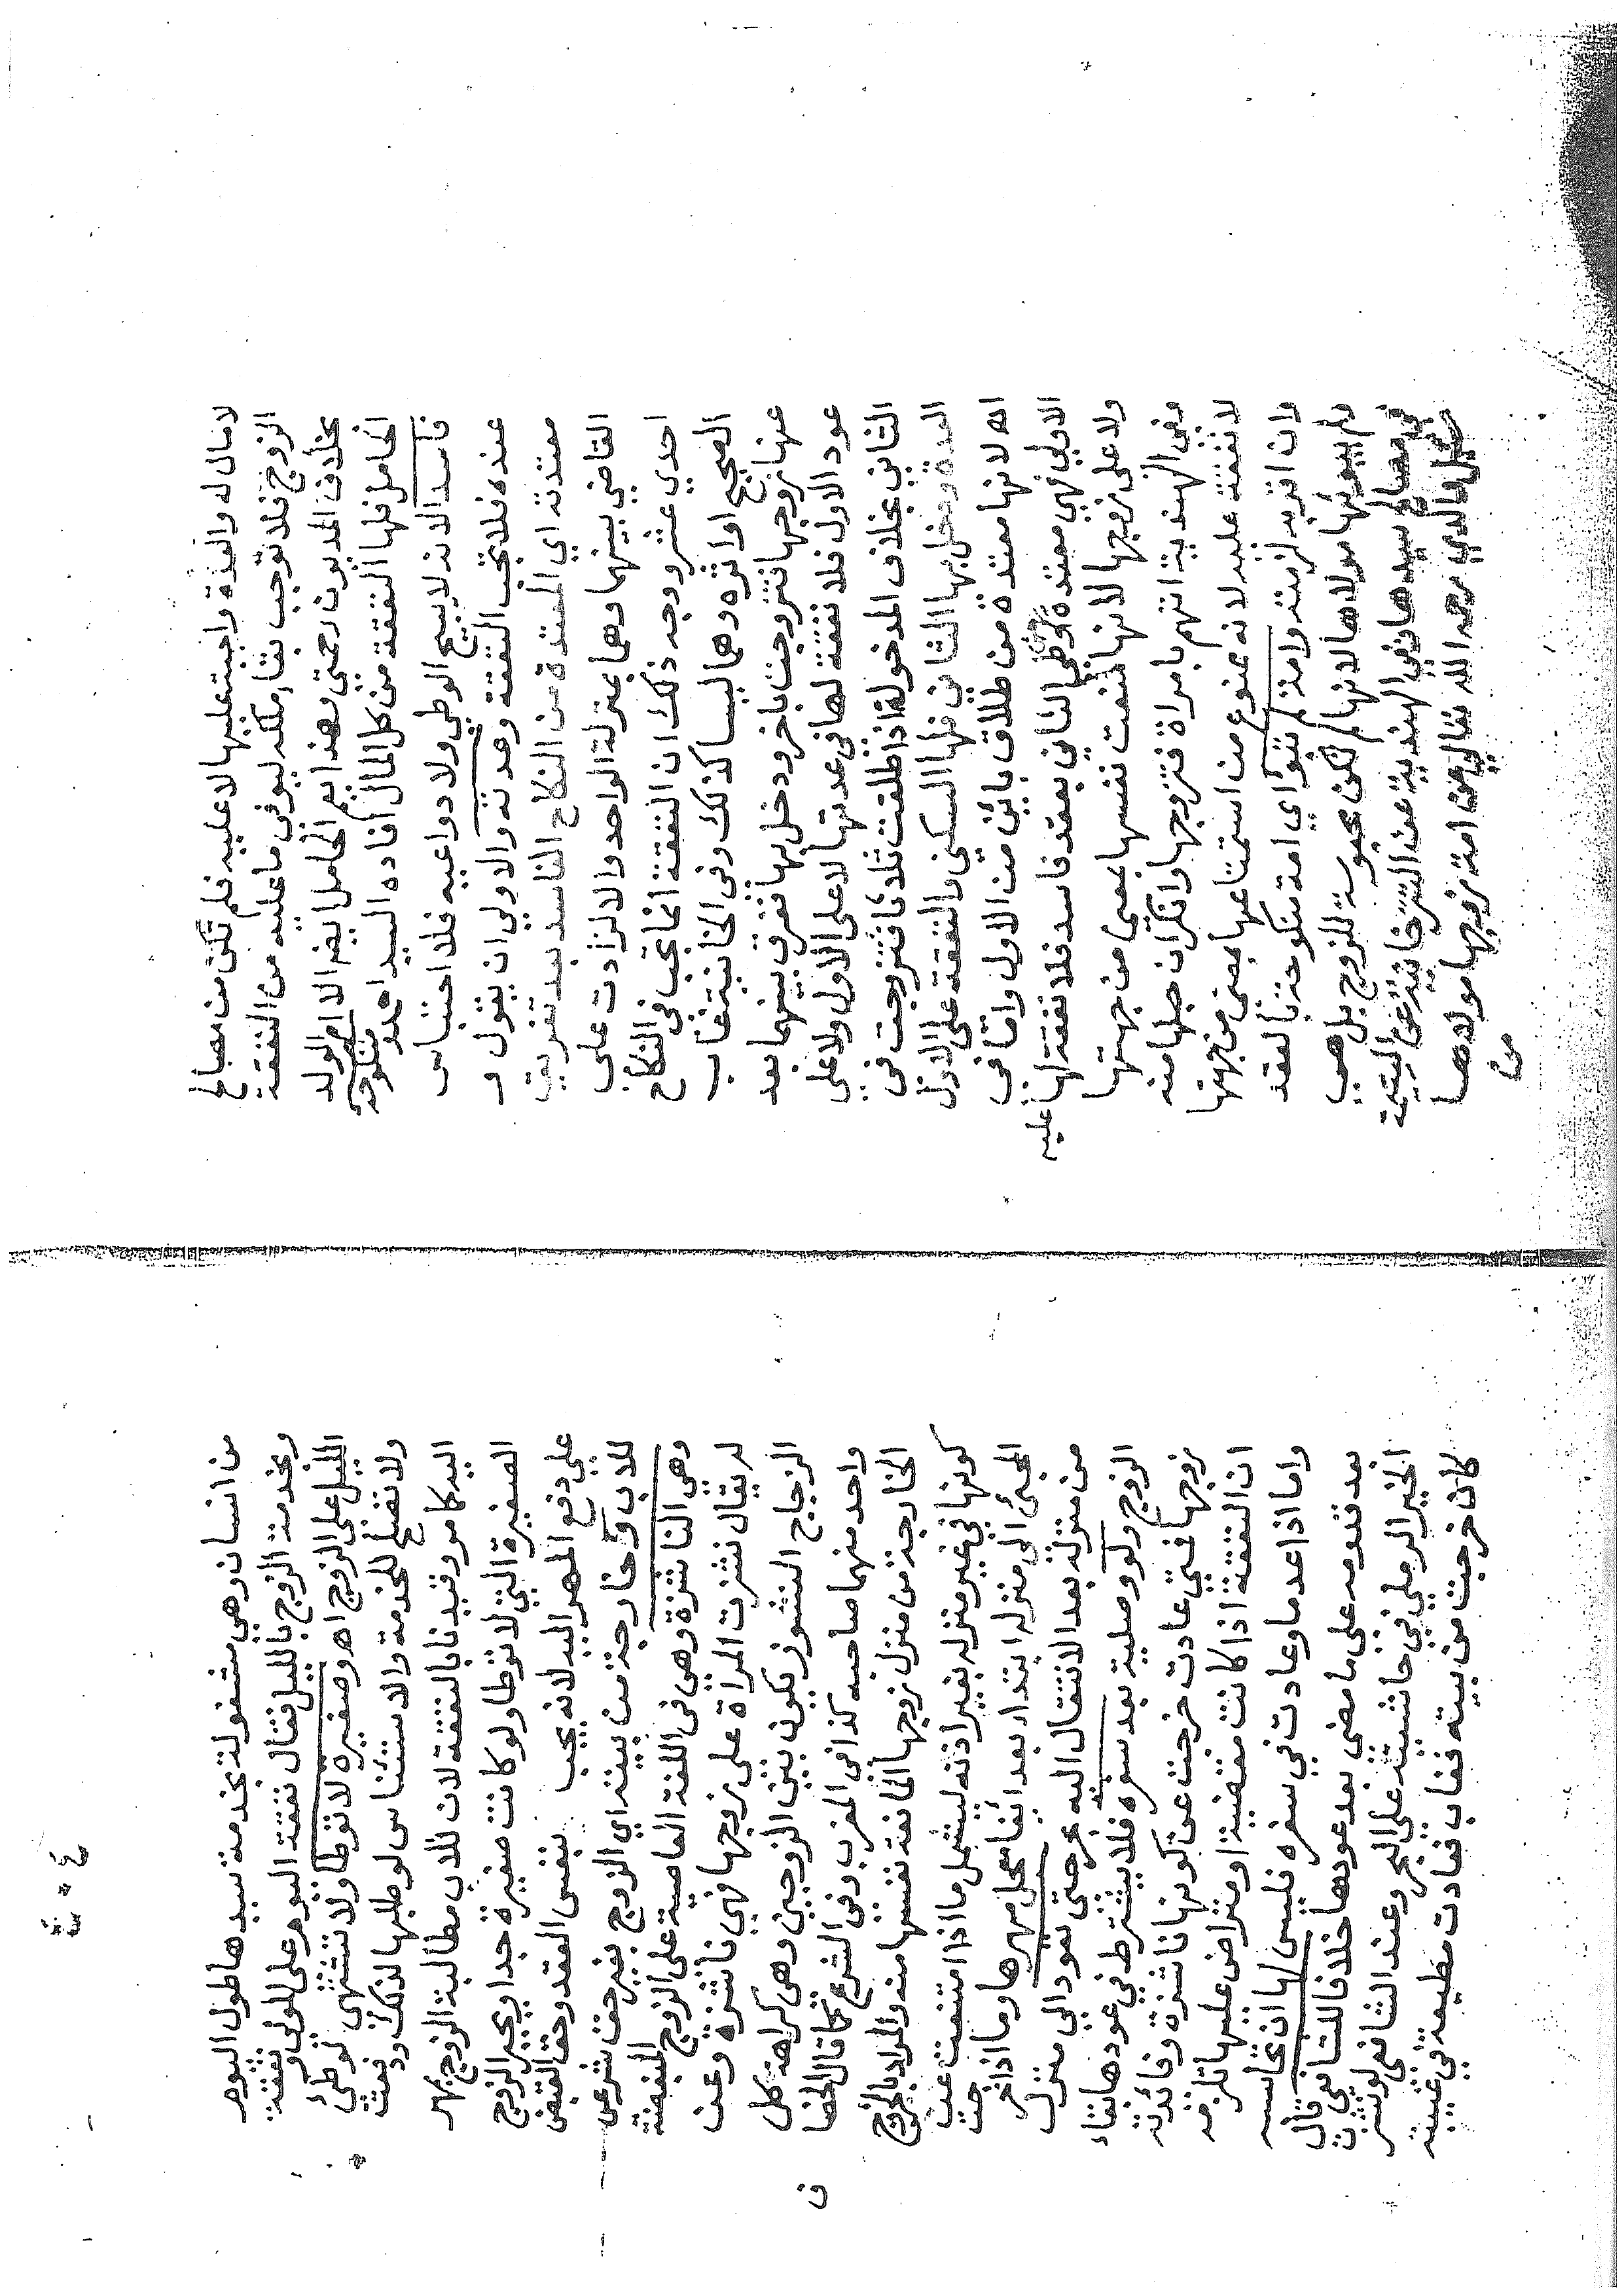 لا مال له والعدة واجبة عليها لا عليه فلم تكن من مصالح
الزوج فلا توجب بقاء ملكه ليوفي ما عليه من النفقة
بخلاف المديون رحمتي وهذا يعم الحامل ايضا الا ام الولد
الحامل فلها النفقة من كل المال افاده السيد احمد ومنكوحة
فاسدا لانه لا يبيح الوطي ولا دواعيه فلا احتباس
عنده فلا تجب النفقة وعدته والاولي ان يقول و
معتدته اي المعتدة من النكاح الفاسد بعد تفريق
القاضي بينهما وهما بمنزلة الواحد والا لزادت على
احدي عشر ووجه ذلك ان النفقة انما تجب في النكاح
الصحيح او اثره وهما ليسا كذلك وفي الخانية غاب
عنها زوجها فتزوجت باخر ودخل بها ففرق بينهما بعد
عود الاول فلا نفقة لها في عدتها لا على الاول ولا على
الثاني بخلاف المدخولة اذا طلقت ثلاثا فتزوجت في
العدة ودخل بها الثاني فلها السكني والنفقة على الاول
اهـ لانها معتدة من طلاق بائن من الاول واما في
الاولي فهي معتدة وطئ الثاني بعقد فاسد فلا نفقة لها عليه
ولا على زوجها لانها منعت نفسها بمعني من جهتها
وفي الهندية اتهم بامراة فتزوجها وانكر ان حبلها منه
لا نفقة عليه لانه ممنوع من استمتاعها بمعنى من جهتها
وان اقر به لزمته وامة لم تبوأ اي امة منكوحة بالعقد
ولم يبوئها مولاها لانها لم تكن محبوسة للزوج بل هي
في مصالح سيدها وفي الهندية عن التترخانية عن اليتيمة
سئل والدي رحمه الله تعالي عن امة زوجها مولاها
من
من انسان وهي مشغولة بخدمة سيدها طول اليوم
وبخدمة الزوج بالليل فقال نفقة اليوم على المولي ونفقة
الليل على الزوج اهـ وصغيرة لا توطا ولا تشتهي لوطئ
ولا تصلح للخدمة والاستئناس لو طلبها لذلك ودفعت
اليه كما مر وقيدنا بالنفقة لان للاب مطالبة الزوج بمهر
الصغيرة التي لا توطا ولو كانت صغيرة جدا ويجبر الزوج
علي دفع المهر اليه لانه يجب بنفس العقد وحق القبض
للاب وخارجة من بيته اي الزوج بغير حق شرعي
وهي الناشزة وهي في اللغة العاصية على الزوج المبغضة
له يقال نشزت المراة على زوجها فهي ناشزة وعن
الزجاج النشوز يكون بين الزوجين وهي كراهة كل
واحد منهما صاحبه كذا في المغرب وفي الشرع كما قال الخصا
ف
الخارجة من منزل زوجها المانعة نفسها منه والمراد بالخروج
كونها في غير منزله بغير اذنه ليشمل ما اذا امتنعت عن
المجئ الي منزله ابتداء بعد ايفا معجل مهرها وما اذا خرجت
من منزله بعد الانتقال اليه بحر حتى تعود الي منزل
الزوج ولو وصلية بعد سفره فلا يشترط في عودها بقاء
زوجها فمتي عادت خرجت عن كونها ناشزة وفائدته
ان النفقة اذا كانت مقضية او متراض عليها تلزمه
واما اذا عدما وعادت في سفره فليس لها ان تحاسبه
بعد قدومه على ما مضى بعد عودها خلافا للشافعي قال
الخير الرملي في حاشيته على البحر وعند الشافعي لو نشزت
كان خرجت من بيته فغاب فعادت مطيعة في غيبته